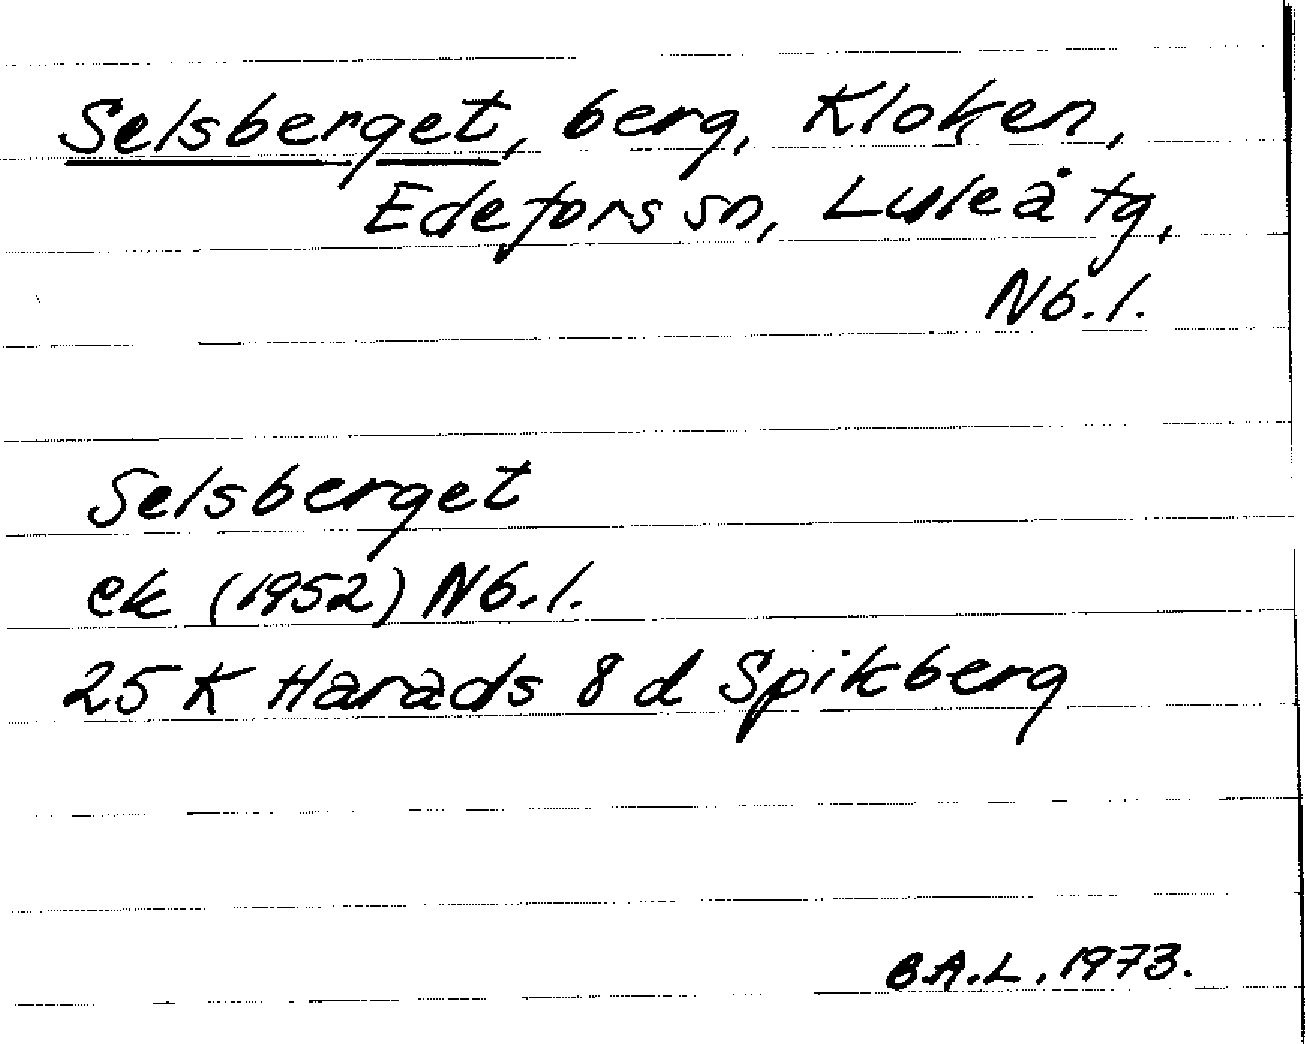 Selsberget, berg, Kloken,
Edefors sn, Luleå tg,
Nb.l.
Selsberget
ek (1952) Nb.l.
25 K Harads 8 d Spikberg
B.A.L. 1973.